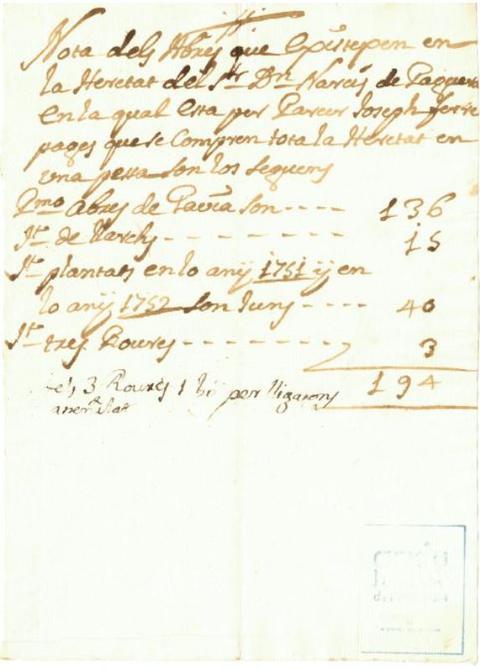 Nota dels Abres que Existexen en
la Heretat del Sr. Dn. Narcis de Paguera
En la qual Esta per Parer Joseph Ferre
pages que se Compren tota la Heretat en
una pessa son los seguens
Pmo. Abres de Pavia son ---- 136
It. de ---------- 15
It. plantats en lo any 1751 y en
lo any 1752 son Junts ---- 40
It. tres Roures ---------- 3
194
els 3 Roures per